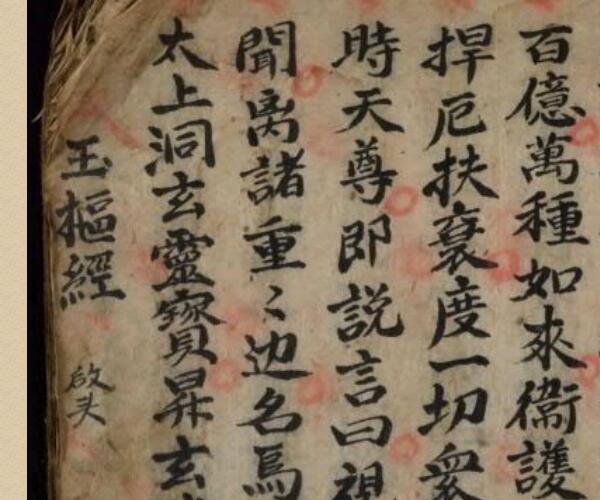 百億萬種如來衛護
捍厄扶衰度一切衆
時天尊即説言曰視
聞离諸重〻边名
太上洞玄靈寶昇玄
玉樞經 啟头